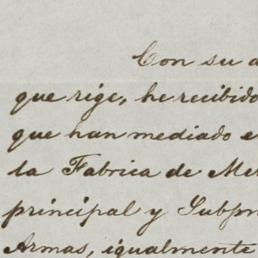 Con su a
que rige, he recibido
que han mediado e
la Fabrica de Me
principal y Subpr
Armas, igualmente